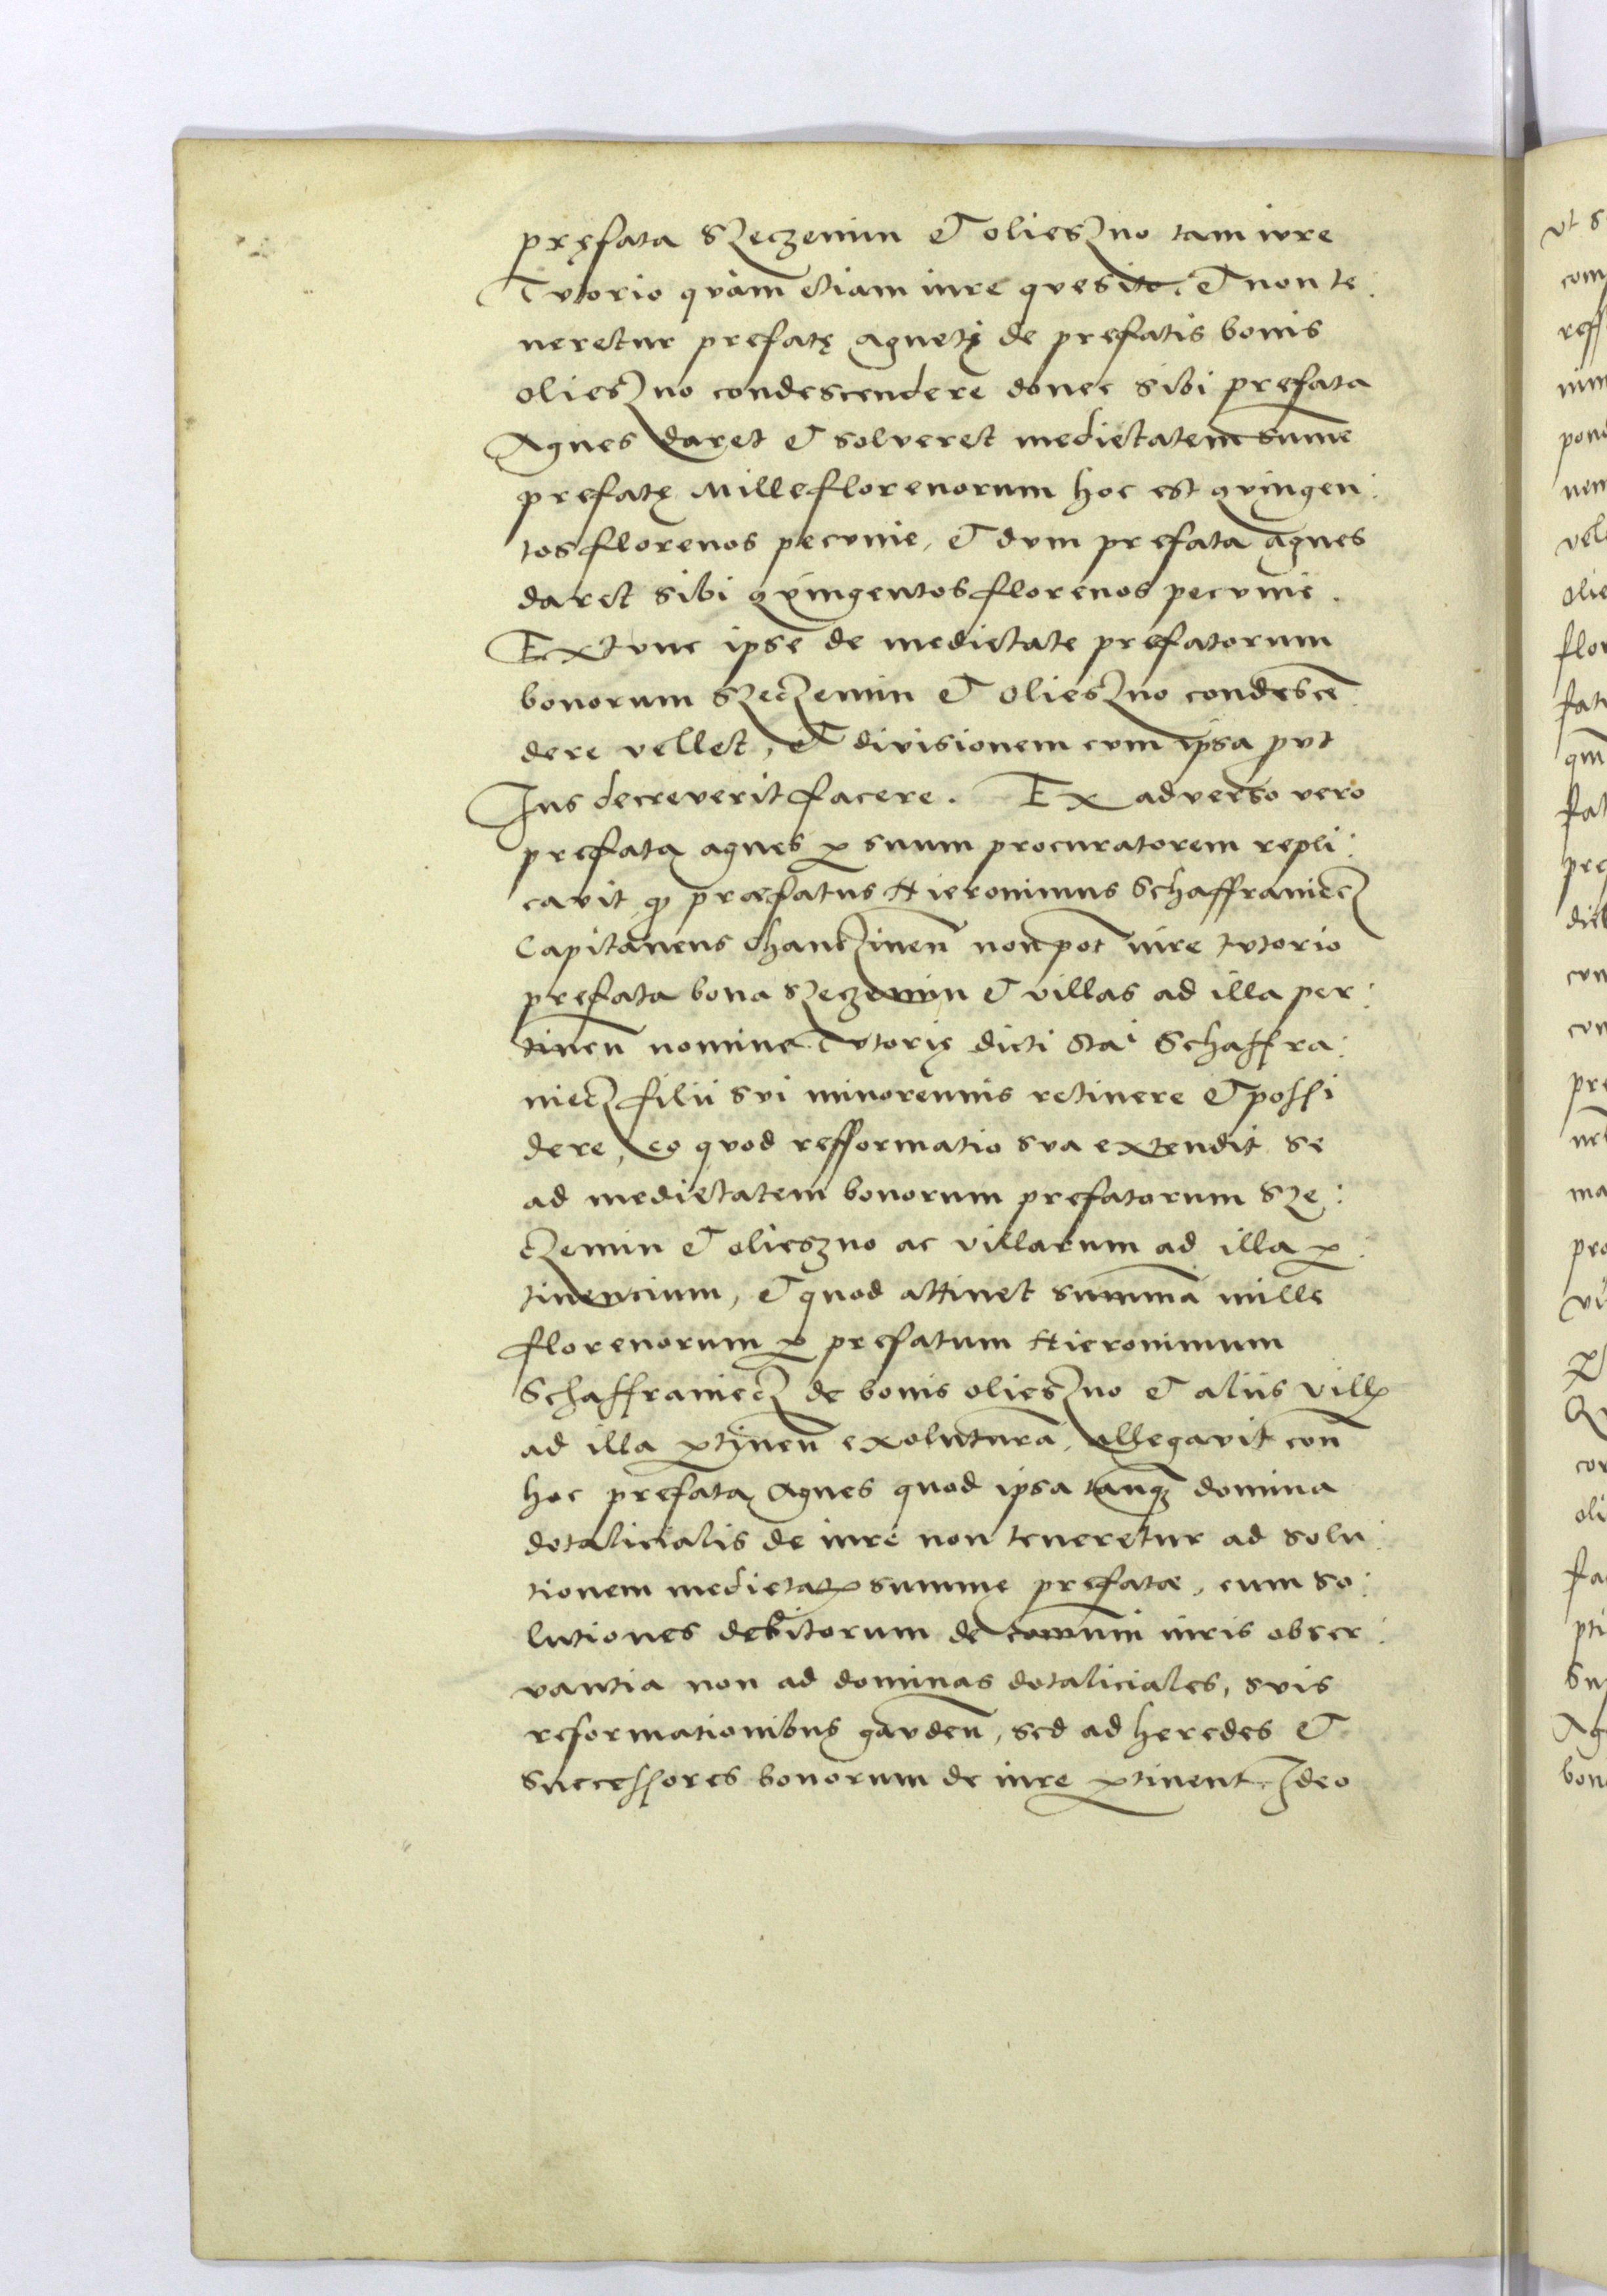 pręfata Szeczemin & oliesZno tam iure
Tutorio quàm etiam iure quesito. & non te:
neretur prefatę agnetę de prefatis bonis
oliesZno condescendere donec sibi prefata
Agnes daret & solveret medietatem summe
prefatę Mille florenorum hoc est quingen:
tos florenos pecunie, & dum prefata agnes
daret sibi quingentos florenos pecunie.
Extunc ipse de medietate prefatorum
bonorum Szeczemin & oliesZno condescē
dere vellet, & divisionem cum ipsa prout
Jus decreverit facere. Ex adverso vero
prefata agnes ꝑ suum procuratorem repli:
cavit ꝙ præfatus Hieronimus Schaffraniecz
Capitaneus Chanczinen̄ non pot̄ iure tutorio
prefata bona Szeczemin & villas ad illa per:
tinen̄ nomine Tutorię dicti Stai Schaffra:
niecz filii sui minorennis retinere & possi
dere, eo quod refformatio sua extendit se
ad medietatem bonorum prefatorum Sze:
czemin & olieszno ac villarum ad illa ꝑ:
tinencium, & quod attinet summā mille
florenorum ꝑ prefatum Hieronimum
Schaffraniecz de bonis oliesZno & aliis vill
ad illa ꝑtinen̄ exolutura, allegavit con̄
hoc prefata Agnes quod ipsa tanqꝫ domina
dotalicialis de iure non teneretur ad solu:
tionem medietat summę prefatæ, cum so:
lutiones debitorum de comuni iuris obser:
vantia non ad dominas dotaliciales, suis
reformationibus gauden̄, sed ad heredes &
successores bonorum de iure ꝑtinent. Ideo